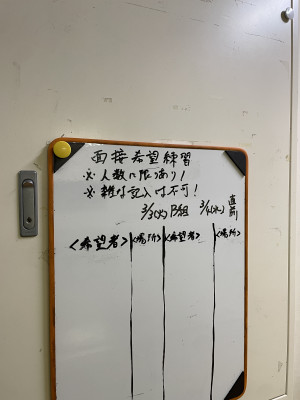 面接希望練習
※人数に限りあり!
※雑な記入は不可!
3/3(火) B組 3/4(水) 直前
<希望者> <場所> <希望者> <場所>